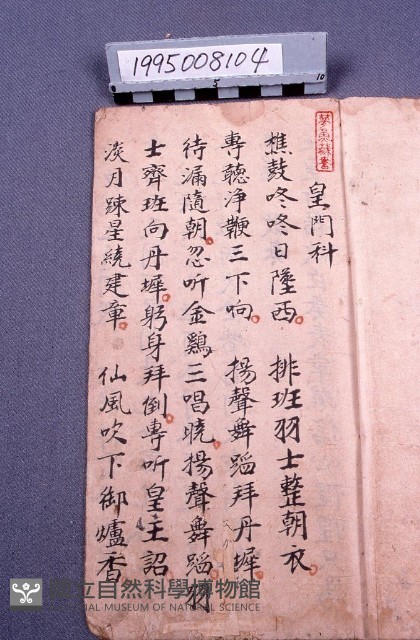 1995008104
5
10
皇門科
樵鼓咚咚日墜西 排班羽士整朝衣
專聽净鞭三下响 揚聲舞蹈拜丹墀
待漏隨朝忽听金鷄三唱曉揚聲舞蹈羽
士齊班向丹墀躬身拜倒專听皇王詔
淡月踈星繞建章 仙風吹下御爐香
國立自然科學博物館
NATIONAL MUSEUM OF NATURAL SCIENCE